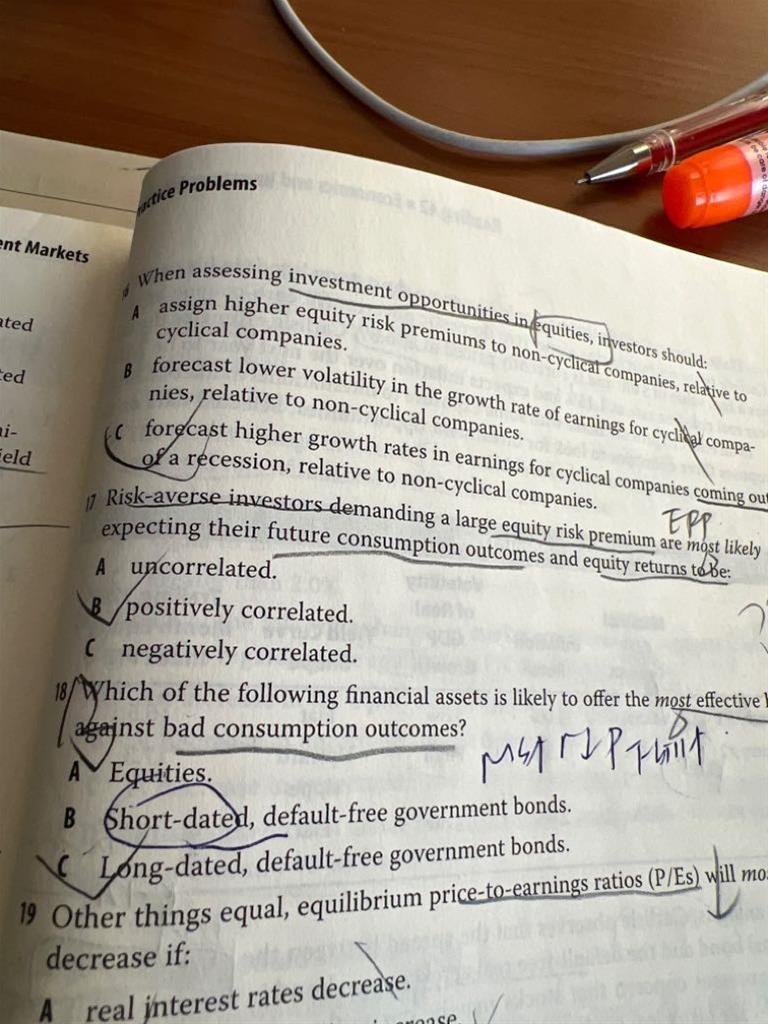 Practice Problems
ent Markets
ated
ted
i-
ield
When assessing investment opportunities in equities, investors should:
A assign higher equity risk premiums to non-cyclical companies, relative to
cyclical companies.
B forecast lower volatility in the growth rate of earnings for cyclical compa-
nies, relative to non-cyclical companies.
C forecast higher growth rates in earnings for cyclical companies coming out
of a recession, relative to non-cyclical companies.
17 Risk-averse investors demanding a large equity risk premium are most likely
expecting their future consumption outcomes and equity returns to be:
A uncorrelated.
B positively correlated.
C negatively correlated.
18 Which of the following financial assets is likely to offer the most effective
against bad consumption outcomes?
A Equities.
B Short-dated, default-free government bonds.
C Long-dated, default-free government bonds.
19 Other things equal, equilibrium price-to-earnings ratios (P/Es) will mo
decrease if:
A real interest rates decrease.